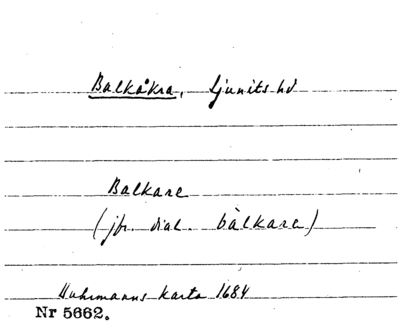 Balkåkra, Ljunits hd
Balkare
(jfr. dial. bàlkare)
Buhrmanns karta 1684
Nr 5662.